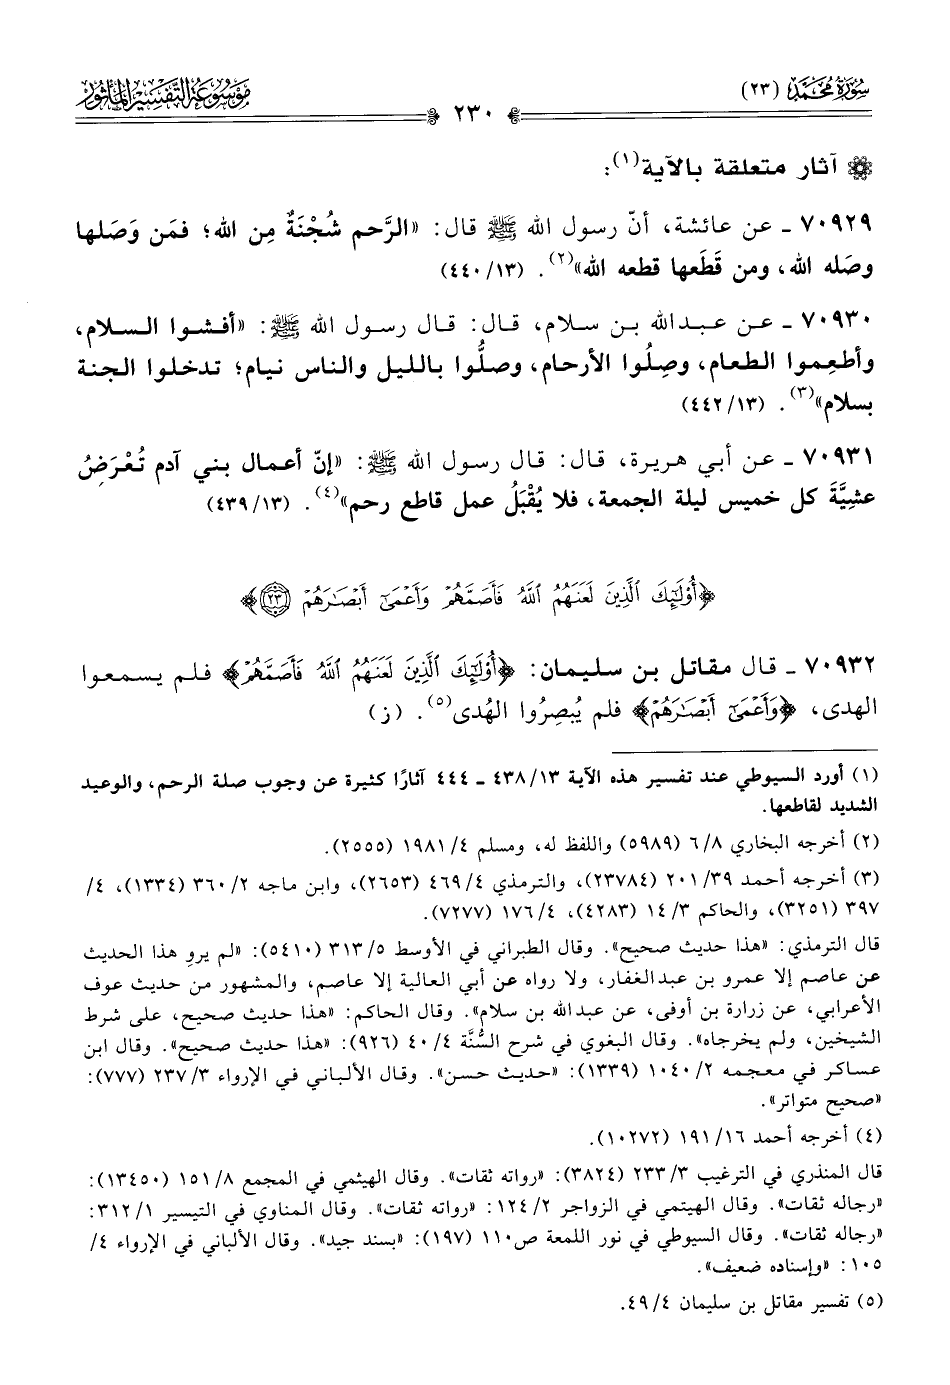 سُورَةُ مُحَمَّد (٢٣)
٢٣٠
مَوْسُوعَةُ التَّفْسِيرِ المَأْثُور
آثار متعلقة بالآية(١):
٧٠٩٢٩ ـ عن عائشة، أنّ رسول الله ﷺ قال: «الرَّحم شُجْنَةٌ مِن الله؛ فمَن وَصَلها
وصَله الله، ومن قَطَعها قطعه الله»(٢). (١٣/ ٤٤٠)
٧٠٩٣٠ ـ عن عبدالله بن سلام، قال: قال رسول الله ﷺ: «أفشوا السلام،
وأطعِموا الطعام، وصِلُوا الأرحام، وصلُّوا بالليل والناس نيام؛ تدخلوا الجنة
بسلام»(٣). (١٣/ ٤٤٢)
٧٠٩٣١ ـ عن أبي هريرة، قال: قال رسول الله ﷺ: «إنّ أعمال بني آدم تُعْرَضُ
عشِيَّةَ كل خميس ليلة الجمعة، فلا يُقْبَلُ عمل قاطع رحم»(٤). (١٣/ ٤٣٩)
﴿أُوْلَٰٓئِكَ ٱلَّذِينَ لَعَنَهُمُ ٱللَّهُ فَأَصَمَّهُمْ وَأَعْمَىٰٓ أَبْصَٰرَهُمْ ٢٣﴾
٧٠٩٣٢ ـ قال مقاتل بن سليمان: ﴿أُوْلَٰٓئِكَ ٱلَّذِينَ لَعَنَهُمُ ٱللَّهُ فَأَصَمَّهُمْ﴾ فلم يسمعوا
الهدى، ﴿وَأَعْمَىٰٓ أَبْصَٰرَهُمْ﴾ فلم يُبصِرُوا الهُدى(٥). (ز)
(١) أورد السيوطي عند تفسير هذه الآية ١٣/ ٤٣٨ ـ ٤٤٤ آثارًا كثيرة عن وجوب صلة الرحم، والوعيد
الشديد لقاطعها.
(٢) أخرجه البخاري ٨/ ٦ (٥٩٨٩) واللفظ له، ومسلم ٤/ ١٩٨١ (٢٥٥٥).
(٣) أخرجه أحمد ٣٩/ ٢٠١ (٢٣٧٨٤)، والترمذي ٤/ ٤٦٩ (٢٦٥٣)، وابن ماجه ٢/ ٣٦٠ (١٣٣٤)، ٤/
٣٩٧ (٣٢٥١)، والحاكم ٣/ ١٤ (٤٢٨٣)، ٤/ ١٧٦ (٧٢٧٧).
قال الترمذي: «هذا حديث صحيح». وقال الطبراني في الأوسط ٥/ ٣١٣ (٥٤١٠): «لم يروِ هذا الحديث
عن عاصم إلا عمرو بن عبدالغفار، ولا رواه عن أبي العالية إلا عاصم، والمشهور من حديث عوف
الأعرابي، عن زرارة بن أوفى، عن عبدالله بن سلام». وقال الحاكم: «هذا حديث صحيح، على شرط
الشيخين، ولم يخرجاه». وقال البغوي في شرح السُّنَّة ٤/ ٤٠ (٩٢٦): «هذا حديث صحيح». وقال ابن
عساكر في معجمه ٢/ ١٠٤٠ (١٣٣٩): «حديث حسن». وقال الألباني في الإرواء ٣/ ٢٣٧ (٧٧٧):
«صحيح متواتر».
(٤) أخرجه أحمد ١٦/ ١٩١ (١٠٢٧٢).
قال المنذري في الترغيب ٣/ ٢٣٣ (٣٨٢٤): «رواته ثقات». وقال الهيثمي في المجمع ٨/ ١٥١ (١٣٤٥٠):
«رجاله ثقات». وقال الهيتمي في الزواجر ٢/ ١٢٤: «رواته ثقات». وقال المناوي في التيسير ١/ ٣١٢:
«رجاله ثقات». وقال السيوطي في نور اللمعة ص١١٠ (١٩٧): «بسند جيد». وقال الألباني في الإرواء ٤/
١٠٥: «وإسناده ضعيف».
(٥) تفسير مقاتل بن سليمان ٤/ ٤٩.